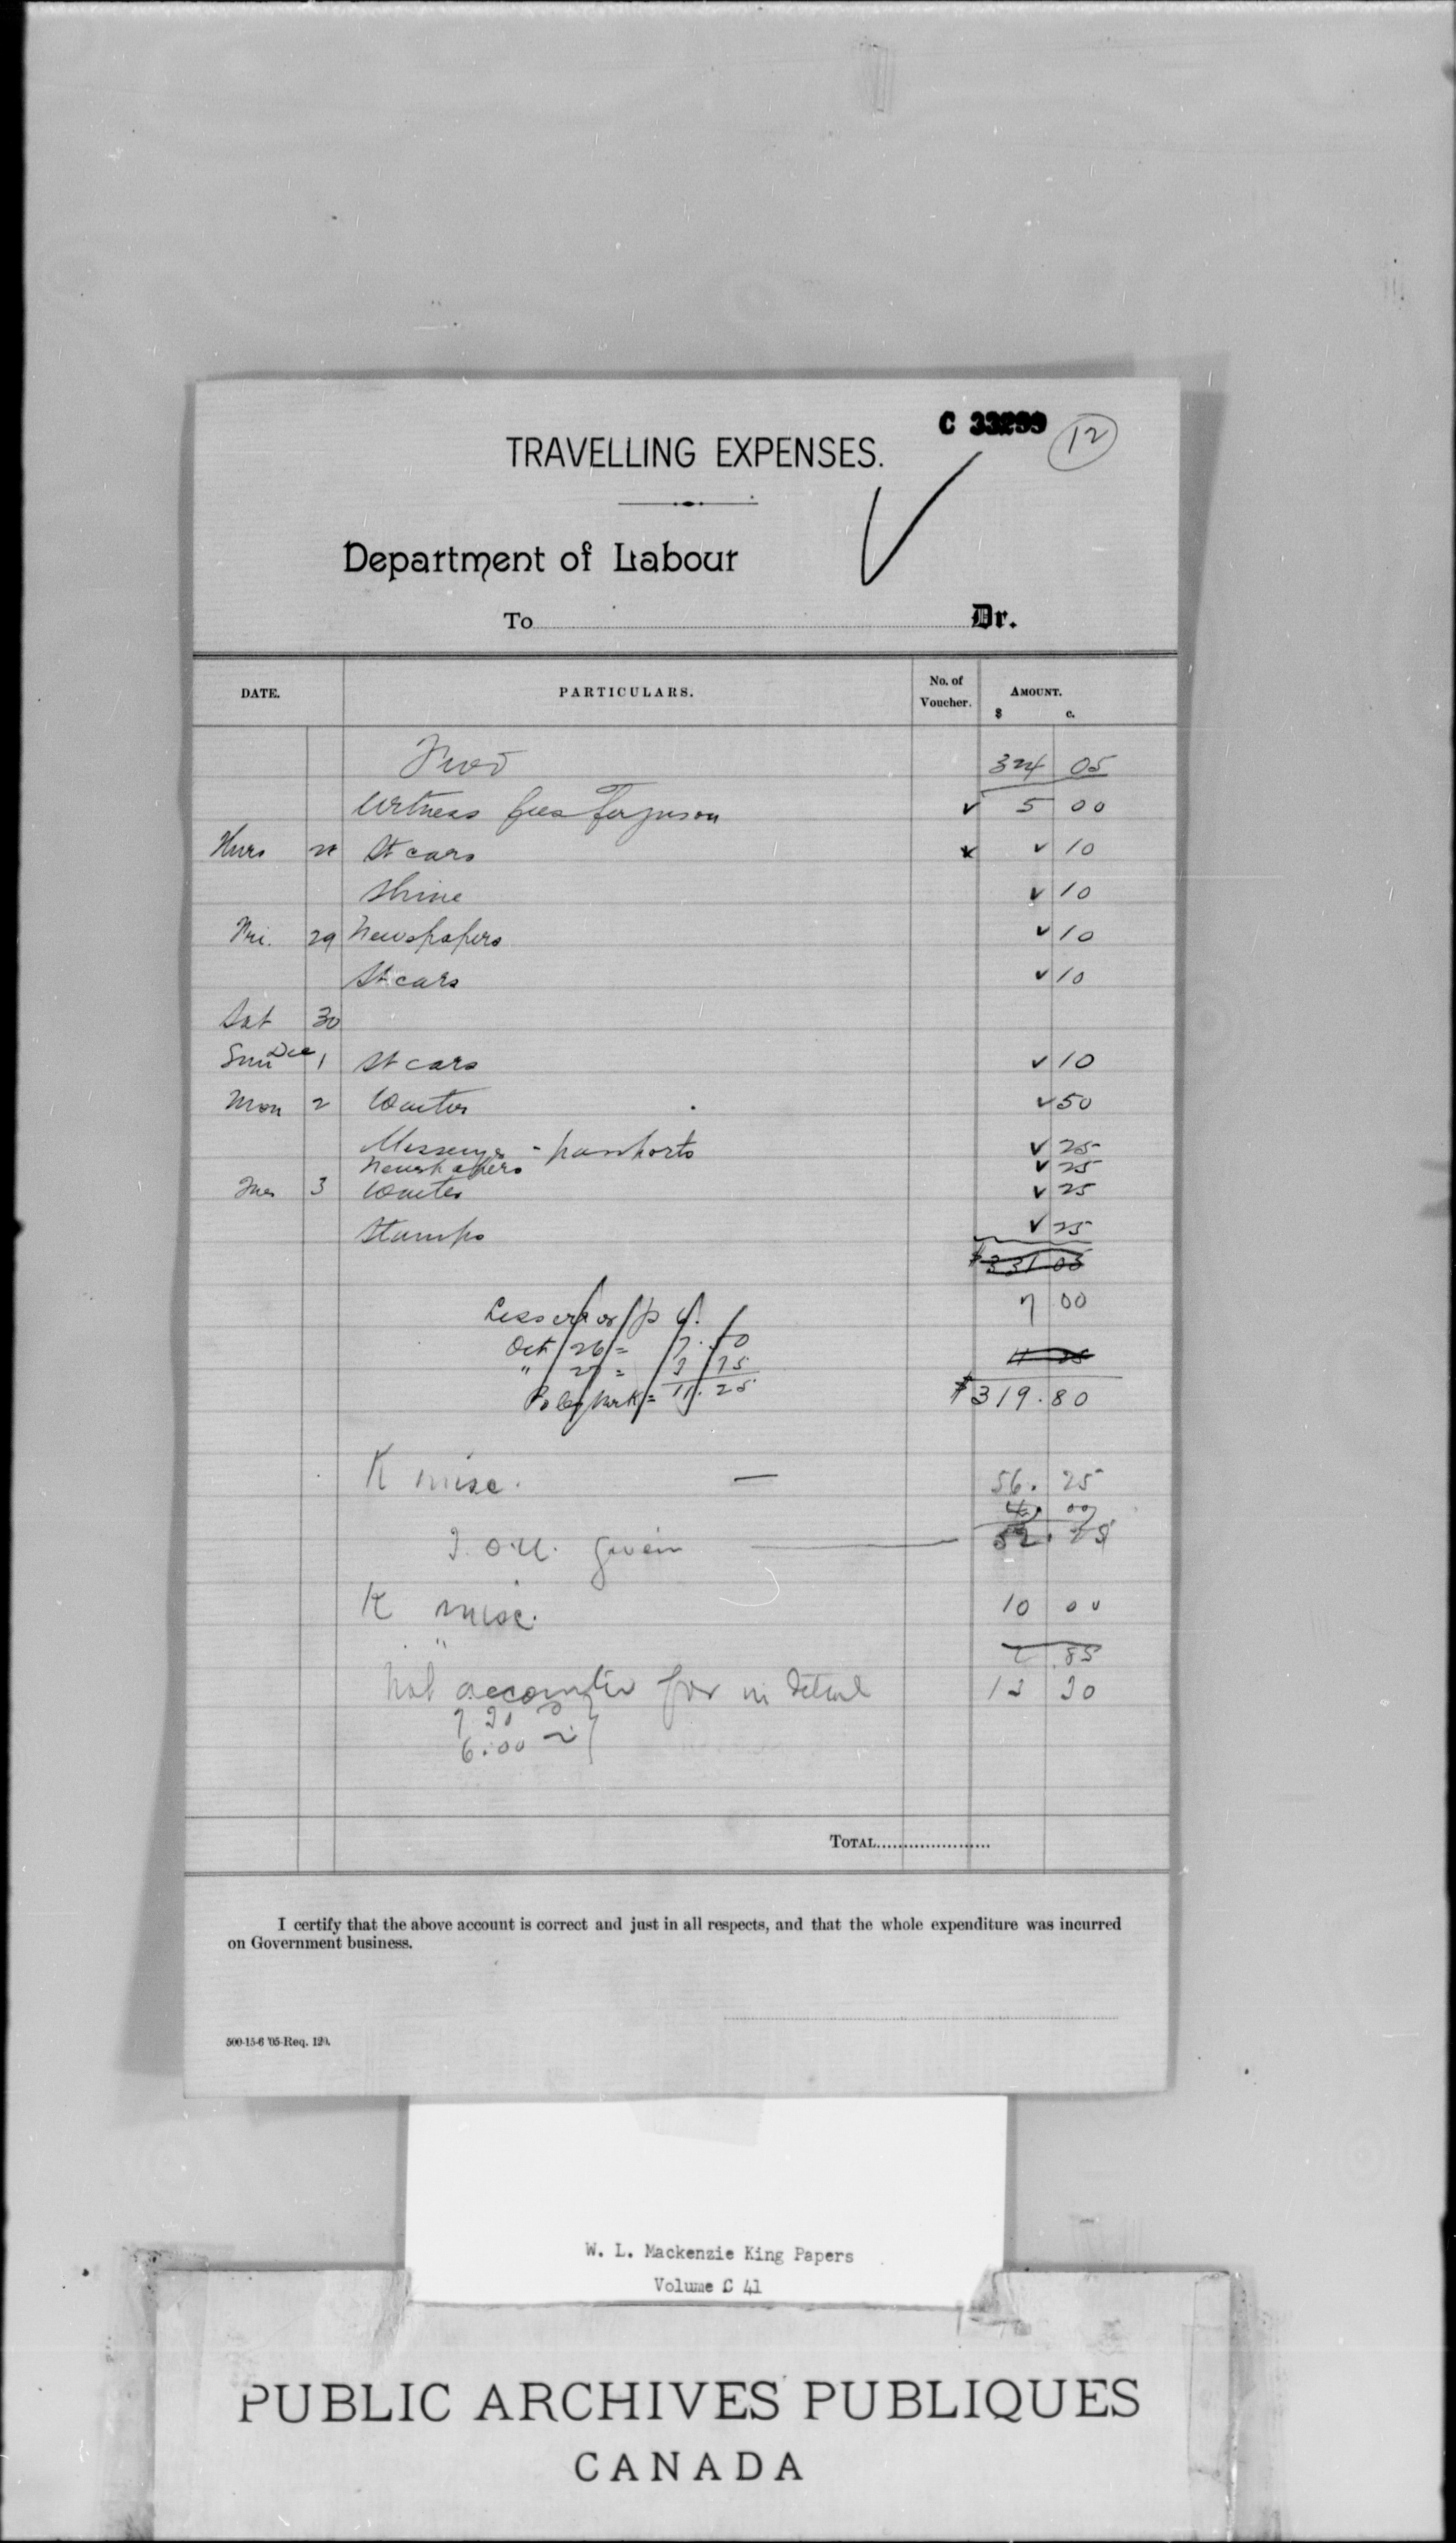 C 33299 12
TRAVELLING EXPENSES.
Department of Labour
To Dr.
DATE. PARTICULARS. No. of Voucher. AMOUNT. $ c.
Fwd 324 05
Witness fees Ferguson ✓ 5 00
Thurs 28 St cars ✓ 10
Shine ✓ 10
Fri. 29 Newspapers ✓ 10
St cars ✓ 10
Sat 30
Sun Dec 1 St cars ✓ 10
Mon 2 Waiter ✓ 50
Messenger - passports ✓ 25
Newspapers ✓ 25
Tues 3 Waiter ✓ 25
Stamps ✓ 25
$331 05
7 00
Less error
Oct 26 = 7.50
" 27 = 3 75 11 25
= 11.25 $319.80
K misc. — 56. 25
4. 00
I.O.U. given — 52. 25
K misc. 10 00
" 85
Not accounted for in detail 13 30
7 30
6.00
TOTAL
I certify that the above account is correct and just in all respects, and that the whole expenditure was incurred
on Government business.
500-15-6 '05-Req. 120.
W. L. Mackenzie King Papers
Volume C 41
PUBLIC ARCHIVES PUBLIQUES
CANADA